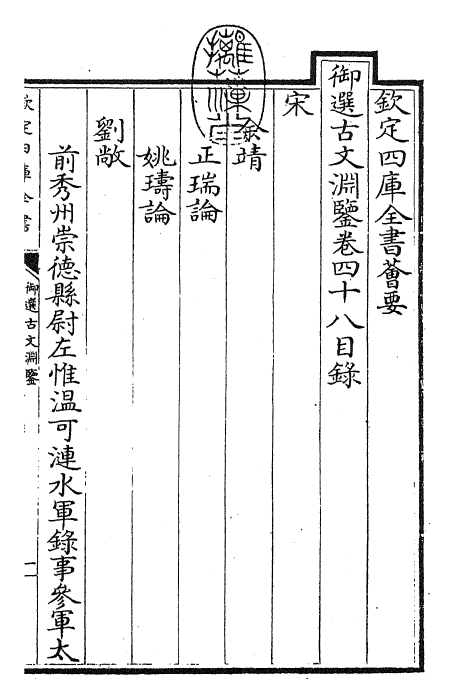 欽定四庫全書薈要
御選古文淵鑒卷四十八目錄
宋
余靖
正瑞論
姚璹論
劉敞
前秀州崇德縣尉左惟温可漣水軍錄事參軍太
欽定四庫全書
御選古文淵鑒